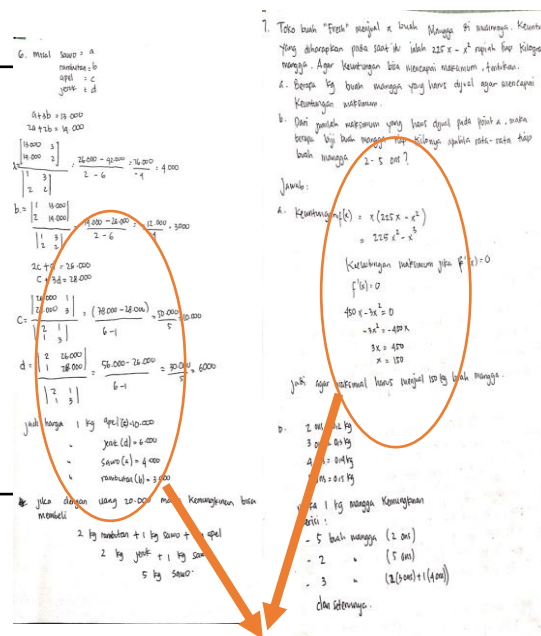 6. misal sawo = a
rambutan = b
apel = c
jeruk = d
a+3b = 13.000
2a+2b = 14.000
|13.000 3|
|14.000 2|
|1 3|
|2 2|
= 26.000 - 42.000 / 2 - 6 = 16.000 / 4 = 4.000
b = |1 13.000|
|2 14.000|
|1 3|
|2 2|
2 - 6
= 3000
2c + d = 26.000
c + 3d = 28.000
c = |26.000 1|
|28.000 3|
|2 1|
|1 3|
= (78.000 - 28.000) / 6 - 1 = 50.000 / 5 = 10.000
d = |2 26.000|
|1 28.000|
|2 1|
|1 3|
= 56.000 - 26.000 / 6 - 1 = 30.000 / 5 = 6000
jadi harga 1 kg apel (c) = 10.000
" jeruk (d) = 6.000
" sawo (a) = 4.000
" rambutan (b) = 3.000
jika dengan uang 20.000 maka kemungkinan bisa
membeli
2 kg rambutan + 1 kg sawo + apel
2 kg jeruk + 1 kg
5 kg sawo.
7. Toko buah "Fresh" menjual x buah Mangga di musimnya. Keuntungan
yang diharapkan pada saat itu ialah 225 x - x² rupiah tiap kilogram
mangga. Agar keuntungan bisa mencapai maksimum, tentukan.
a. Berapa kg buah mangga yang harus dijual agar mencapai
keuntungan maksimum.
b. Dari jumlah maksimum yang harus dijual pada point a, maka
berapa biji buah mangga tiap kilonya apabila rata-rata tiap
buah mangga 2-5 ons?
Jawab:
a. Keuntungan f(x) = x (225 x - x²)
= 225 x² - x³
Keuntungan maksimum jika f'(x) = 0
f'(x) = 0
450 x - 3x² = 0
-3x² = -450 x
3x = 450
x = 150
Jadi agar maksimal harus menjual 150 kg buah mangga.
b. 2 ons = 0,2 kg
3 ons = 0,3 kg
4 ons = 0,4 kg
5 ons = 0,5 kg
maka 1 kg mangga kemungkinan
berisi :
- 5 buah mangga (2 ons)
- 2 " (5 ons)
- 3 " (2 (3 ons) + 1 (4 ons))
dan seterusnya.